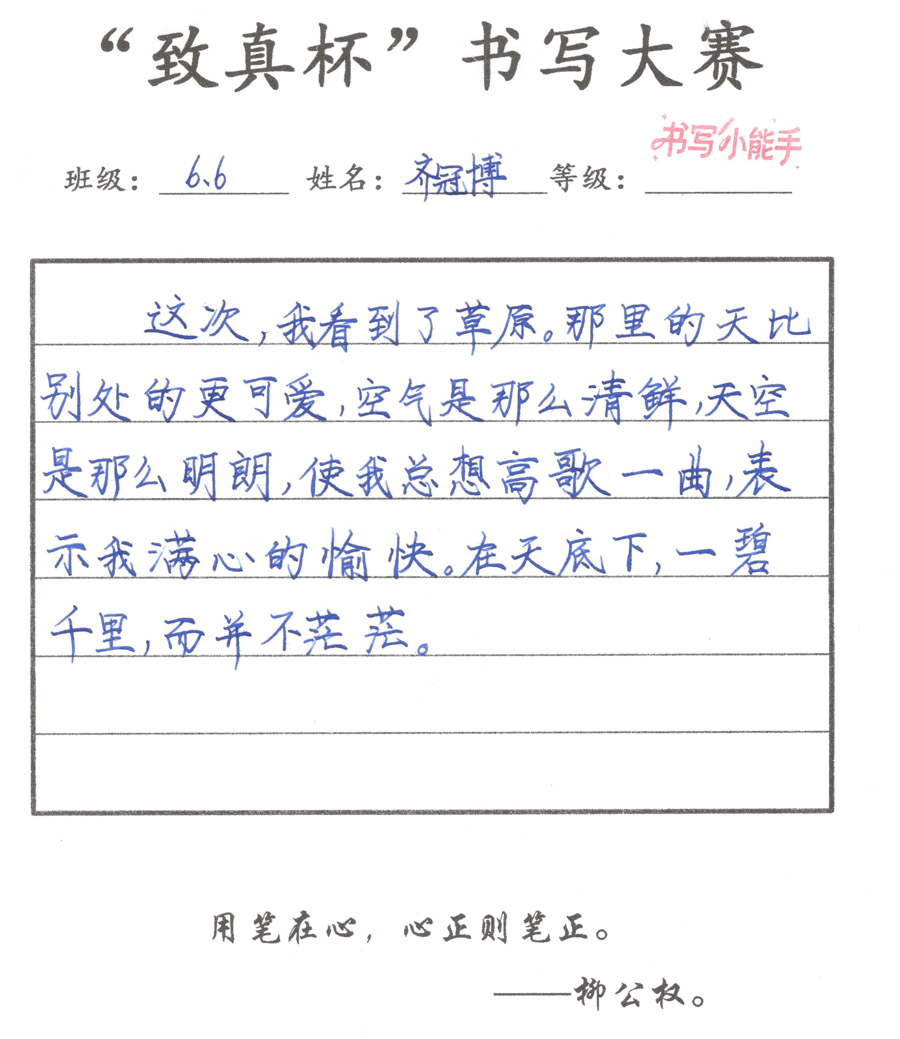 “致真杯”书写大赛
书写小能手
班级：6.6 姓名：齐冠博 等级：
这次,我看到了草原。那里的天比
别处的更可爱,空气是那么清鲜,天空
是那么明朗,使我总想高歌一曲,表
示我满心的愉快。在天底下,一碧
千里,而并不茫茫。
用笔在心，心正则笔正。
——柳公权。